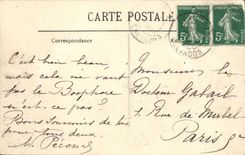 CARTE POSTALE
Correspondance
CALVADOS
5c 5c
C'est bien beau,
mais cela ne vaut
pas le Bosphore
n'est-ce pas ?
Bons souvenirs de tous
pour tous deux
Monsieur le
Docteur
5, Rue de
Paris